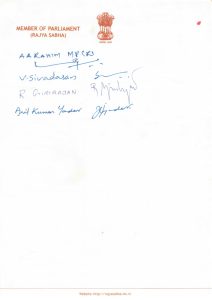 MEMBER OF PARLIAMENT
(RAJYA SABHA)
AARAHIM MP (RS)
V. Sivadasan
R GIRIRAJAN
Anil Kumar Yadav
Website: http://rajyasabha.nic.in